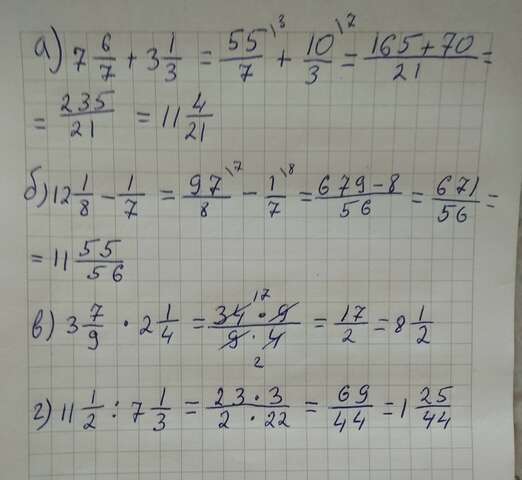 а) 7 6/7 + 3 1/3 = 55/7 \3 + 10/3 \7 = 165+70/21 =
= 235/21 = 11 4/21
б) 12 1/8 - 1/7 = 97/8 \7 - 1/7 \8 = 679-8/56 = 671/56 =
= 11 55/56
в) 3 7/9 · 2 1/4 = 34 17 · 9/9 · 4 2 = 17/2 = 8 1/2
г) 11 1/2 : 7 1/3 = 23·3/2·22 = 69/44 = 1 25/44